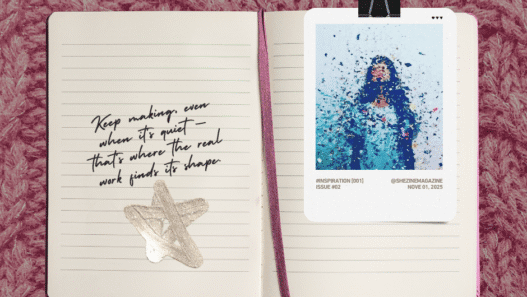 Keep making, even
when it's quiet —
that's where the real
work finds its shape.
♥♥♥
#INSPIRATION [001]
ISSUE #02
@SHEZINEMAGAZINE
NOVE 01, 2025